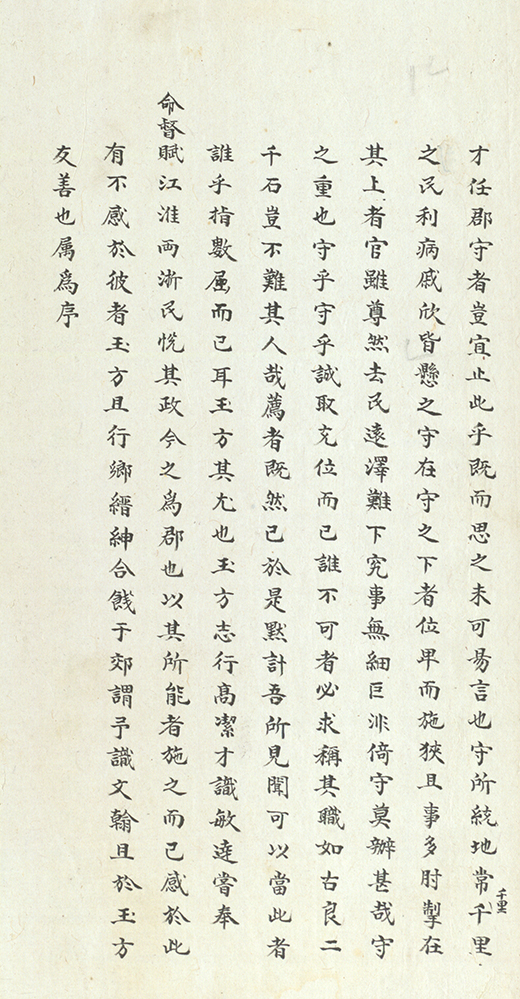 才任郡守者豈宜止此乎既而思之未可易言也守所統地常千里
千里
之民利病戚欣皆懸之守在守之下者位卑而施狹且事多肘掣在
其上者官雖尊然去民遠澤難下究事無細巨非倚守莫辦甚哉守
之重也守乎守乎誠取充位而已誰不可者必求稱其職如古良二
千石豈不難其人哉薦者既然已於是默計吾所見聞可以當此者
誰乎指數屈而已耳玉方其尤也玉方志行高潔才識敏達嘗奉
命督賦江淮两浙民悅其政今之爲郡也以其所能者施之而已感於此
有不感於彼者玉方且行鄉縉紳合餞于郊謂予識文翰且於玉方
友善也属爲序